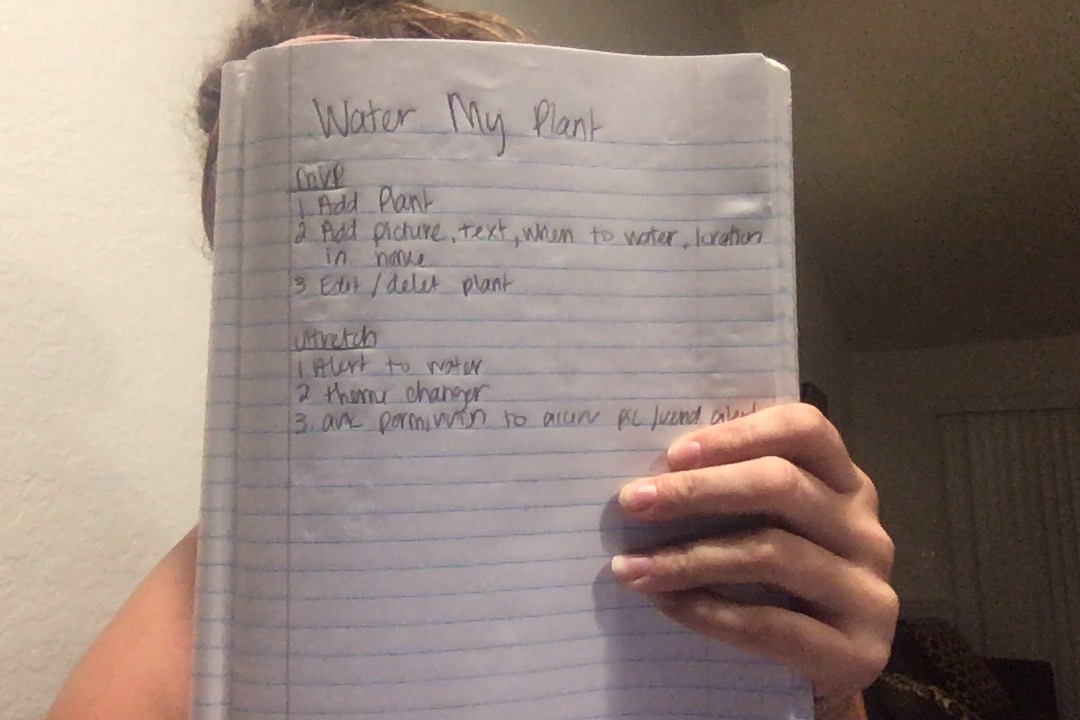 Water My Plant
MVP
1 Add Plant
2 Add picture, text, when to water, location
in home
3 Edit / delet plant
Stretch
1 Alert to water
2 theme changer
3. ask permission to access pic / send alert